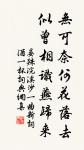 無可奈何花落去
似曾相識燕歸來
晏殊浣溪沙一曲新詞
酒一杯詞與調喜